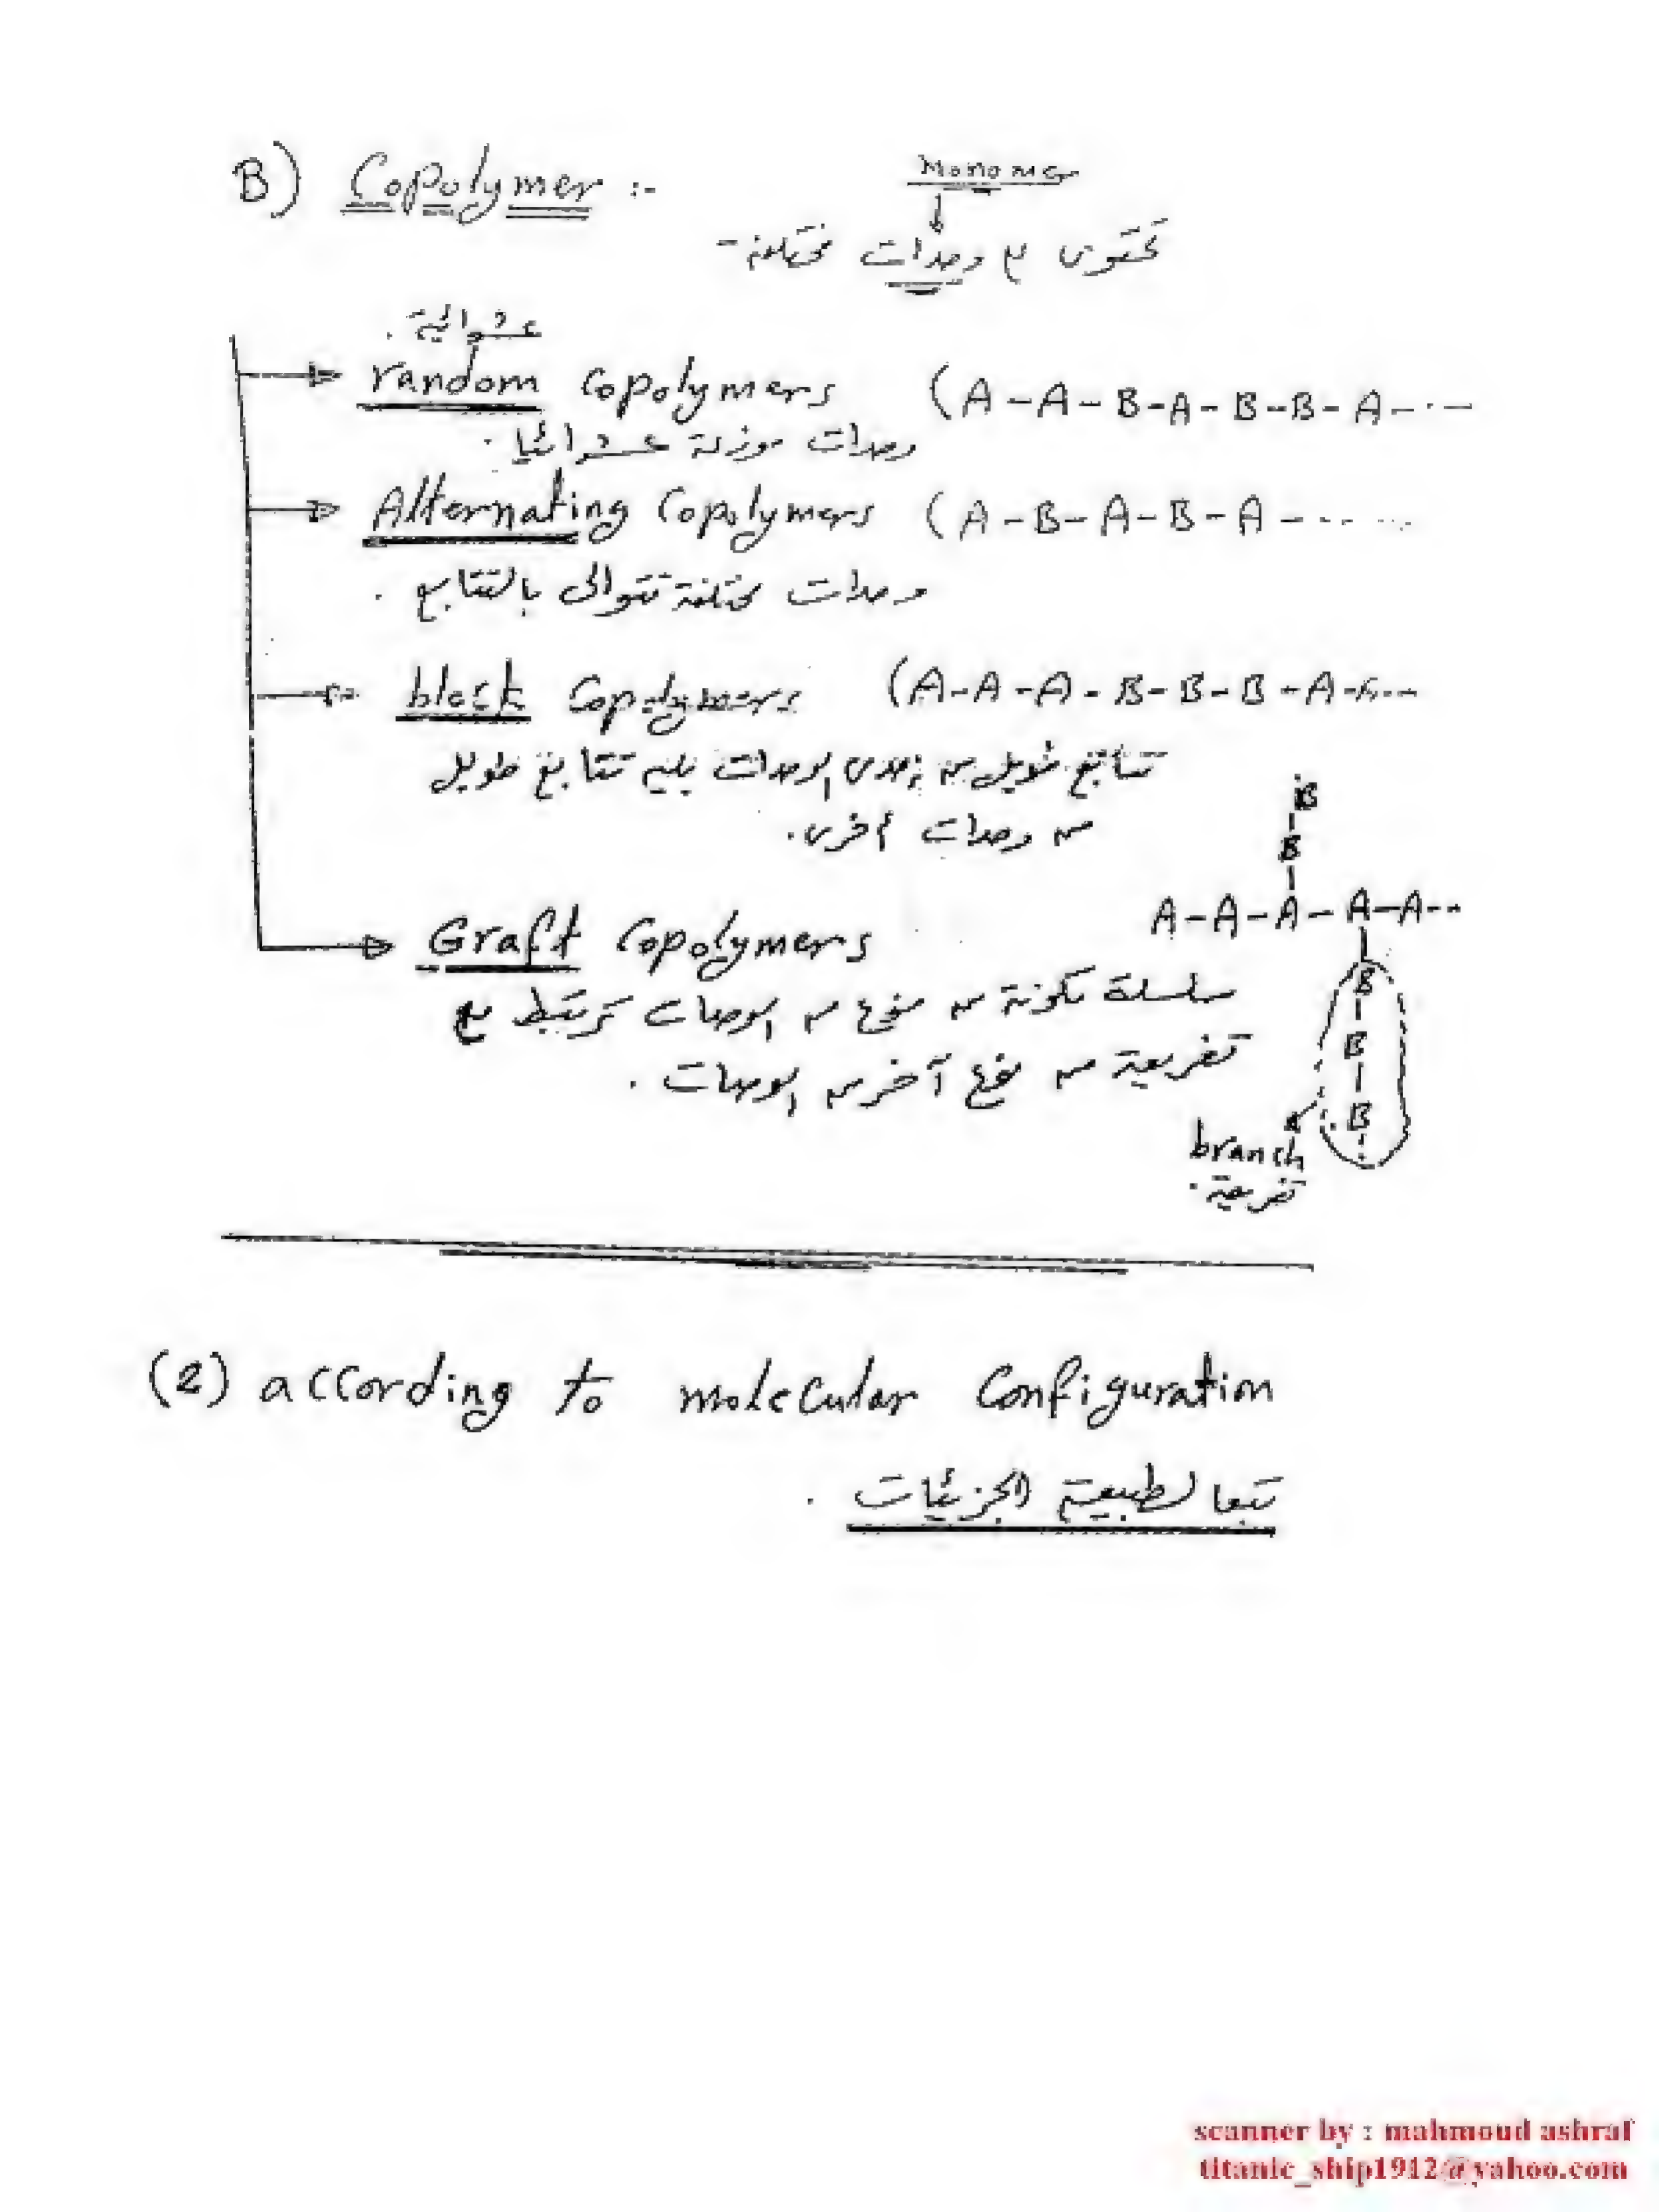 B) Copolymer :-
monomer
تحتوى م وحدات مختلفة -
عشوائية .
random Copolymers (A-A-B-A-B-B-A-..-
وحدات موزعة عشوائيا .
Alternating Copolymers (A-B-A-B-A-.....
وحدات مختلفة تتوالى بالتتابع .
block Copolymers (A-A-A-B-B-B-A-A--
تتابع طويل من إحدى الوحدات يليه تتابع طويل
من وحدات أخرى .
B
B
A-A-A-A-A--
Graft Copolymers
B
سلسلة مكونة من نوع من الوحدات ترتبط مع
B
تفريعة من نوع آخر من الوحدات .
B
branch
تفريعة .
(2) according to molecular Configuration
تبعا لطبيعة الجزيئات .
scanner by : mahmoud ashraf
titanic_ship1912@yahoo.com